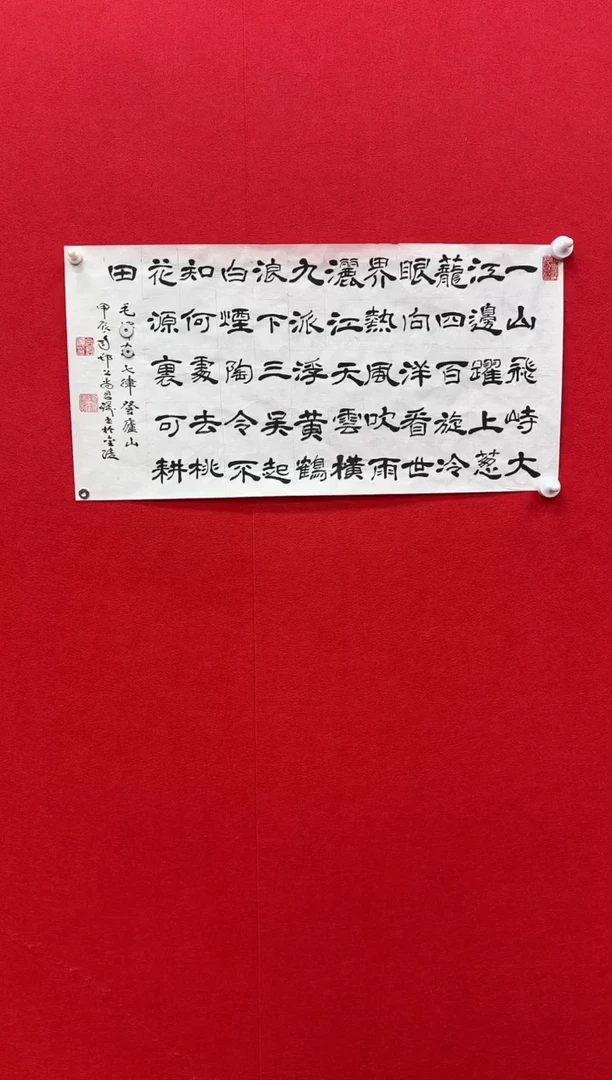 一山飛峙大
江邊躍上蔥
蘢四百旋冷
眼向洋看世
界熱風吹雨
灑江天雲橫
九派浮黃鶴
浪下三吳起
白煙陶令不
知何處去桃
花源裏可耕
田
毛七律登廬山
甲辰書於金陵